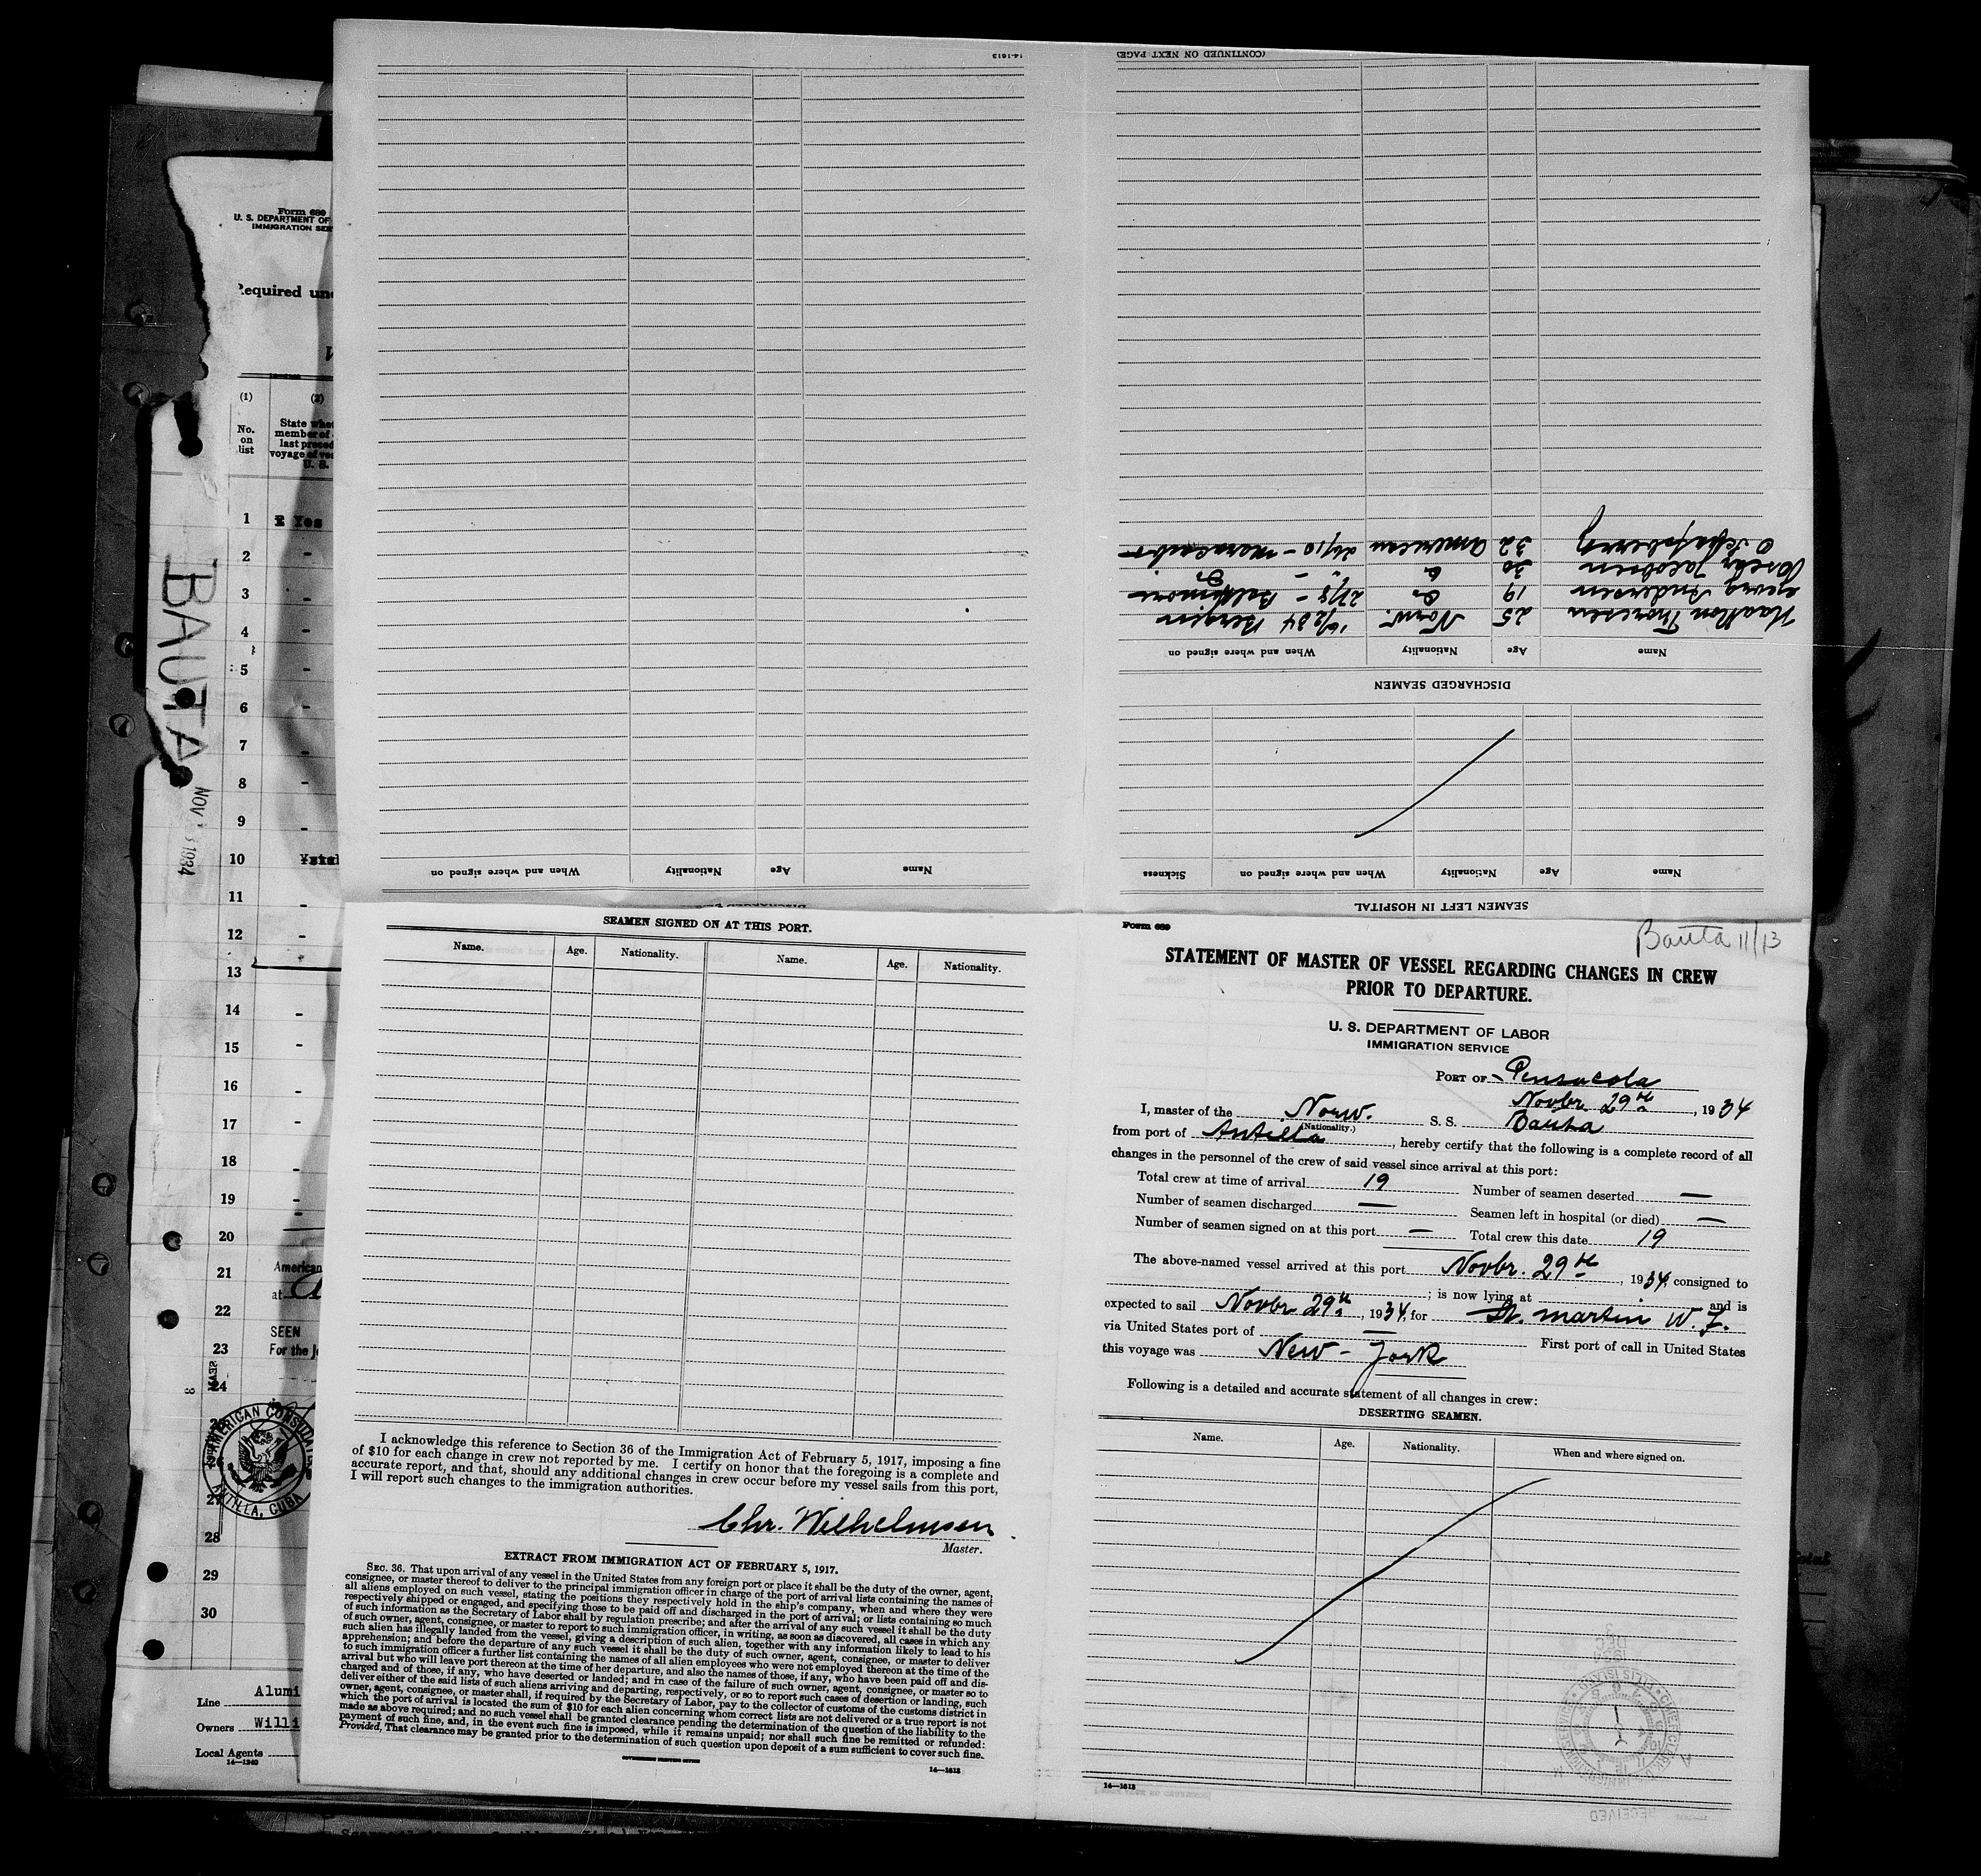 Form 689
U. S. DEPARTMENT OF
IMMIGRATION SER
Required und
(1) (2)
No. on list
State whe
member of
last preced
voyage of ves
U. S.
1 Yes
2 -
3 -
4 -
5 -
6 -
7 -
8 -
9 -
10
11 -
12 -
13
14 -
15 -
16 -
17 -
18 -
19 -
20
21
22
23
24
28
29
30
BAUTA
NOV 1934
American
at
SEEN
For the j
SEAL
AMERICAN CONSULATE
ANTILLA, CUBA
Line Alumi
Owners Willi
Local Agents
14—1240
14-1613
Name Age Nationality When and where signed on
(CONTINUED ON NEXT PAGE)
SEAMEN LEFT IN HOSPITAL
Name Age Nationality When and where signed on Sickness
DISCHARGED SEAMEN
Name Age Nationality When and where signed on
Haakon Thoresen 25 Norw. 16/2 34 Bergen
Georg Andersen 19 Do 27/8 - Baltimore
Oscar Jacobsen 30 Do
32 American 24/10 - Maracaibo
SEAMEN SIGNED ON AT THIS PORT.
Name. Age. Nationality. Name. Age. Nationality.
I acknowledge this reference to Section 36 of the Immigration Act of February 5, 1917, imposing a fine
of $10 for each change in crew not reported by me. I certify on honor that the foregoing is a complete and
accurate report, and that, should any additional changes in crew occur before my vessel sails from this port,
I will report such changes to the immigration authorities.
Chr. Wilhelmsen
Master.
EXTRACT FROM IMMIGRATION ACT OF FEBRUARY 5, 1917.
SEC. 36. That upon arrival of any vessel in the United States from any foreign port or place it shall be the duty of the owner, agent,
consignee, or master thereof to deliver to the principal immigration officer in charge of the port of arrival lists containing the names of
all aliens employed on such vessel, stating the positions they respectively hold in the ship's company, when and where they were
respectively shipped or engaged, and specifying those to be paid off and discharged in the port of arrival; or lists containing so much
of such information as the Secretary of Labor shall by regulation prescribe; and after the arrival of any such vessel it shall be the duty
of such owner, agent, consignee, or master to report to such immigration officer, in writing, as soon as discovered, all cases in which any
such alien has illegally landed from the vessel, giving a description of such alien, together with any information likely to lead to his
apprehension; and before the departure of any such vessel it shall be the duty of such owner, agent, consignee, or master to deliver
to such immigration officer a further list containing the names of all alien employees who were not employed thereon at the time of the
arrival but who will leave port thereon at the time of her departure, and also the names of those, if any, who have been paid off and dis-
charged and of those, if any, who have deserted or landed; and in case of the failure of such owner, agent, consignee, or master so to
deliver either of the said lists of such aliens arriving and departing, respectively, or so to report such cases of desertion or landing, such
owner, agent, consignee, or master shall, if required by the Secretary of Labor, pay to the collector of customs of the customs district in
which the port of arrival is located the sum of $10 for each alien concerning whom correct lists are not delivered or a true report is not
made as above required; and no such vessel shall be granted clearance pending the determination of the question of the liability to the
payment of such fine, and, in the event such fine is imposed, while it remains unpaid; nor shall such fine be remitted or refunded:
Provided, That clearance may be granted prior to the determination of such question upon deposit of a sum sufficient to cover such fine.
GOVERNMENT PRINTING OFFICE
14—1613
Form 689
Bauta 11/13
STATEMENT OF MASTER OF VESSEL REGARDING CHANGES IN CREW
PRIOR TO DEPARTURE.
U. S. DEPARTMENT OF LABOR
IMMIGRATION SERVICE
PORT OF Pensacola
Novbr. 29th, 1934
I, master of the Norw. S. S. Bauta
(Nationality.)
from port of Antilla, hereby certify that the following is a complete record of all
changes in the personnel of the crew of said vessel since arrival at this port:
Total crew at time of arrival 19 Number of seamen deserted —
Number of seamen discharged — Seamen left in hospital (or died) —
Number of seamen signed on at this port — Total crew this date 19
The above-named vessel arrived at this port Novbr. 29th, 1934, consigned to
; is now lying at and is
expected to sail Novbr. 29th, 1934, for St. Martin W. J.
via United States port of — First port of call in United States
this voyage was New-York
Following is a detailed and accurate statement of all changes in crew:
DESERTING SEAMEN.
Name. Age. Nationality. When and where signed on.
14—1613
RECEIVED